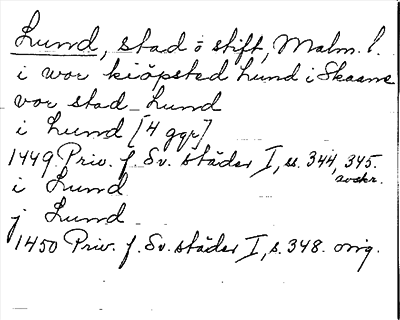 Lund, stad o stift, Malm. l.
i wor kiöpsted Lund i Skaane
vor stad Lund
i Lund [4 ggr]
1449 Priv. f. Sv. städer I, ss. 344, 345.
avskr.
i Lund
j Lund
1450 Priv. f. Sv. städer I, s. 348. orig.